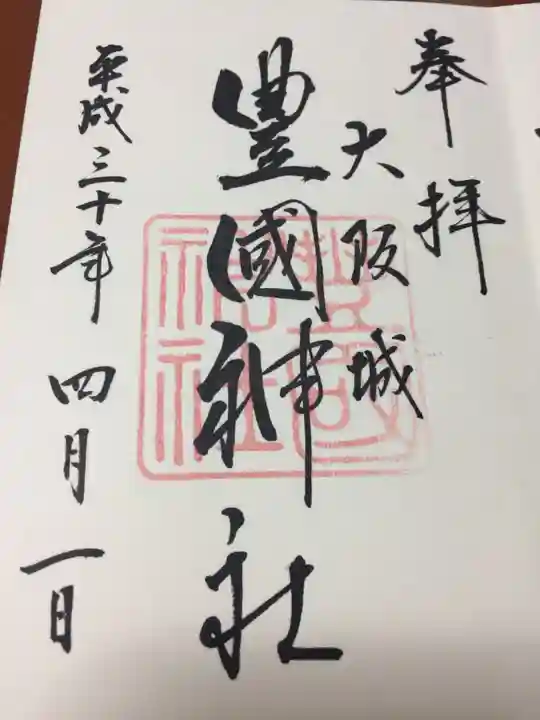 奉拝
大阪城
豊國神社
平成三十年四月一日
豊國
神社